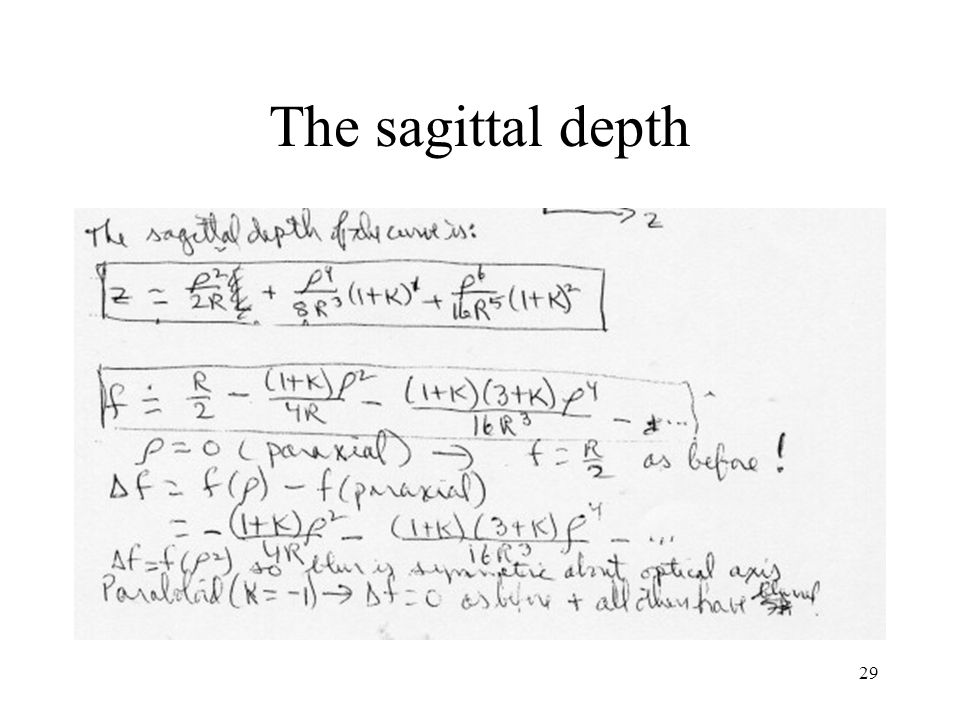 The sagittal depth
z
The sagittal depth of the curve is:
z = ρ²/2R + ρ⁴/8R³ (1+K) + ρ⁶/16R⁵ (1+K)²
f = R/2 - (1+K)ρ²/4R - (1+K)(3+K)ρ⁴/16R³ - ...
ρ = 0 (paraxial) → f = R/2 as before!
Δf = f(ρ) - f(paraxial)
= -(1+K)ρ²/4R - (1+K)(3+K)ρ⁴/16R³ - ...
Δf = f(ρ²) so blur is symmetric about optical axis
Paraboloid (K = -1) → Δf = 0 as before + all others have
29